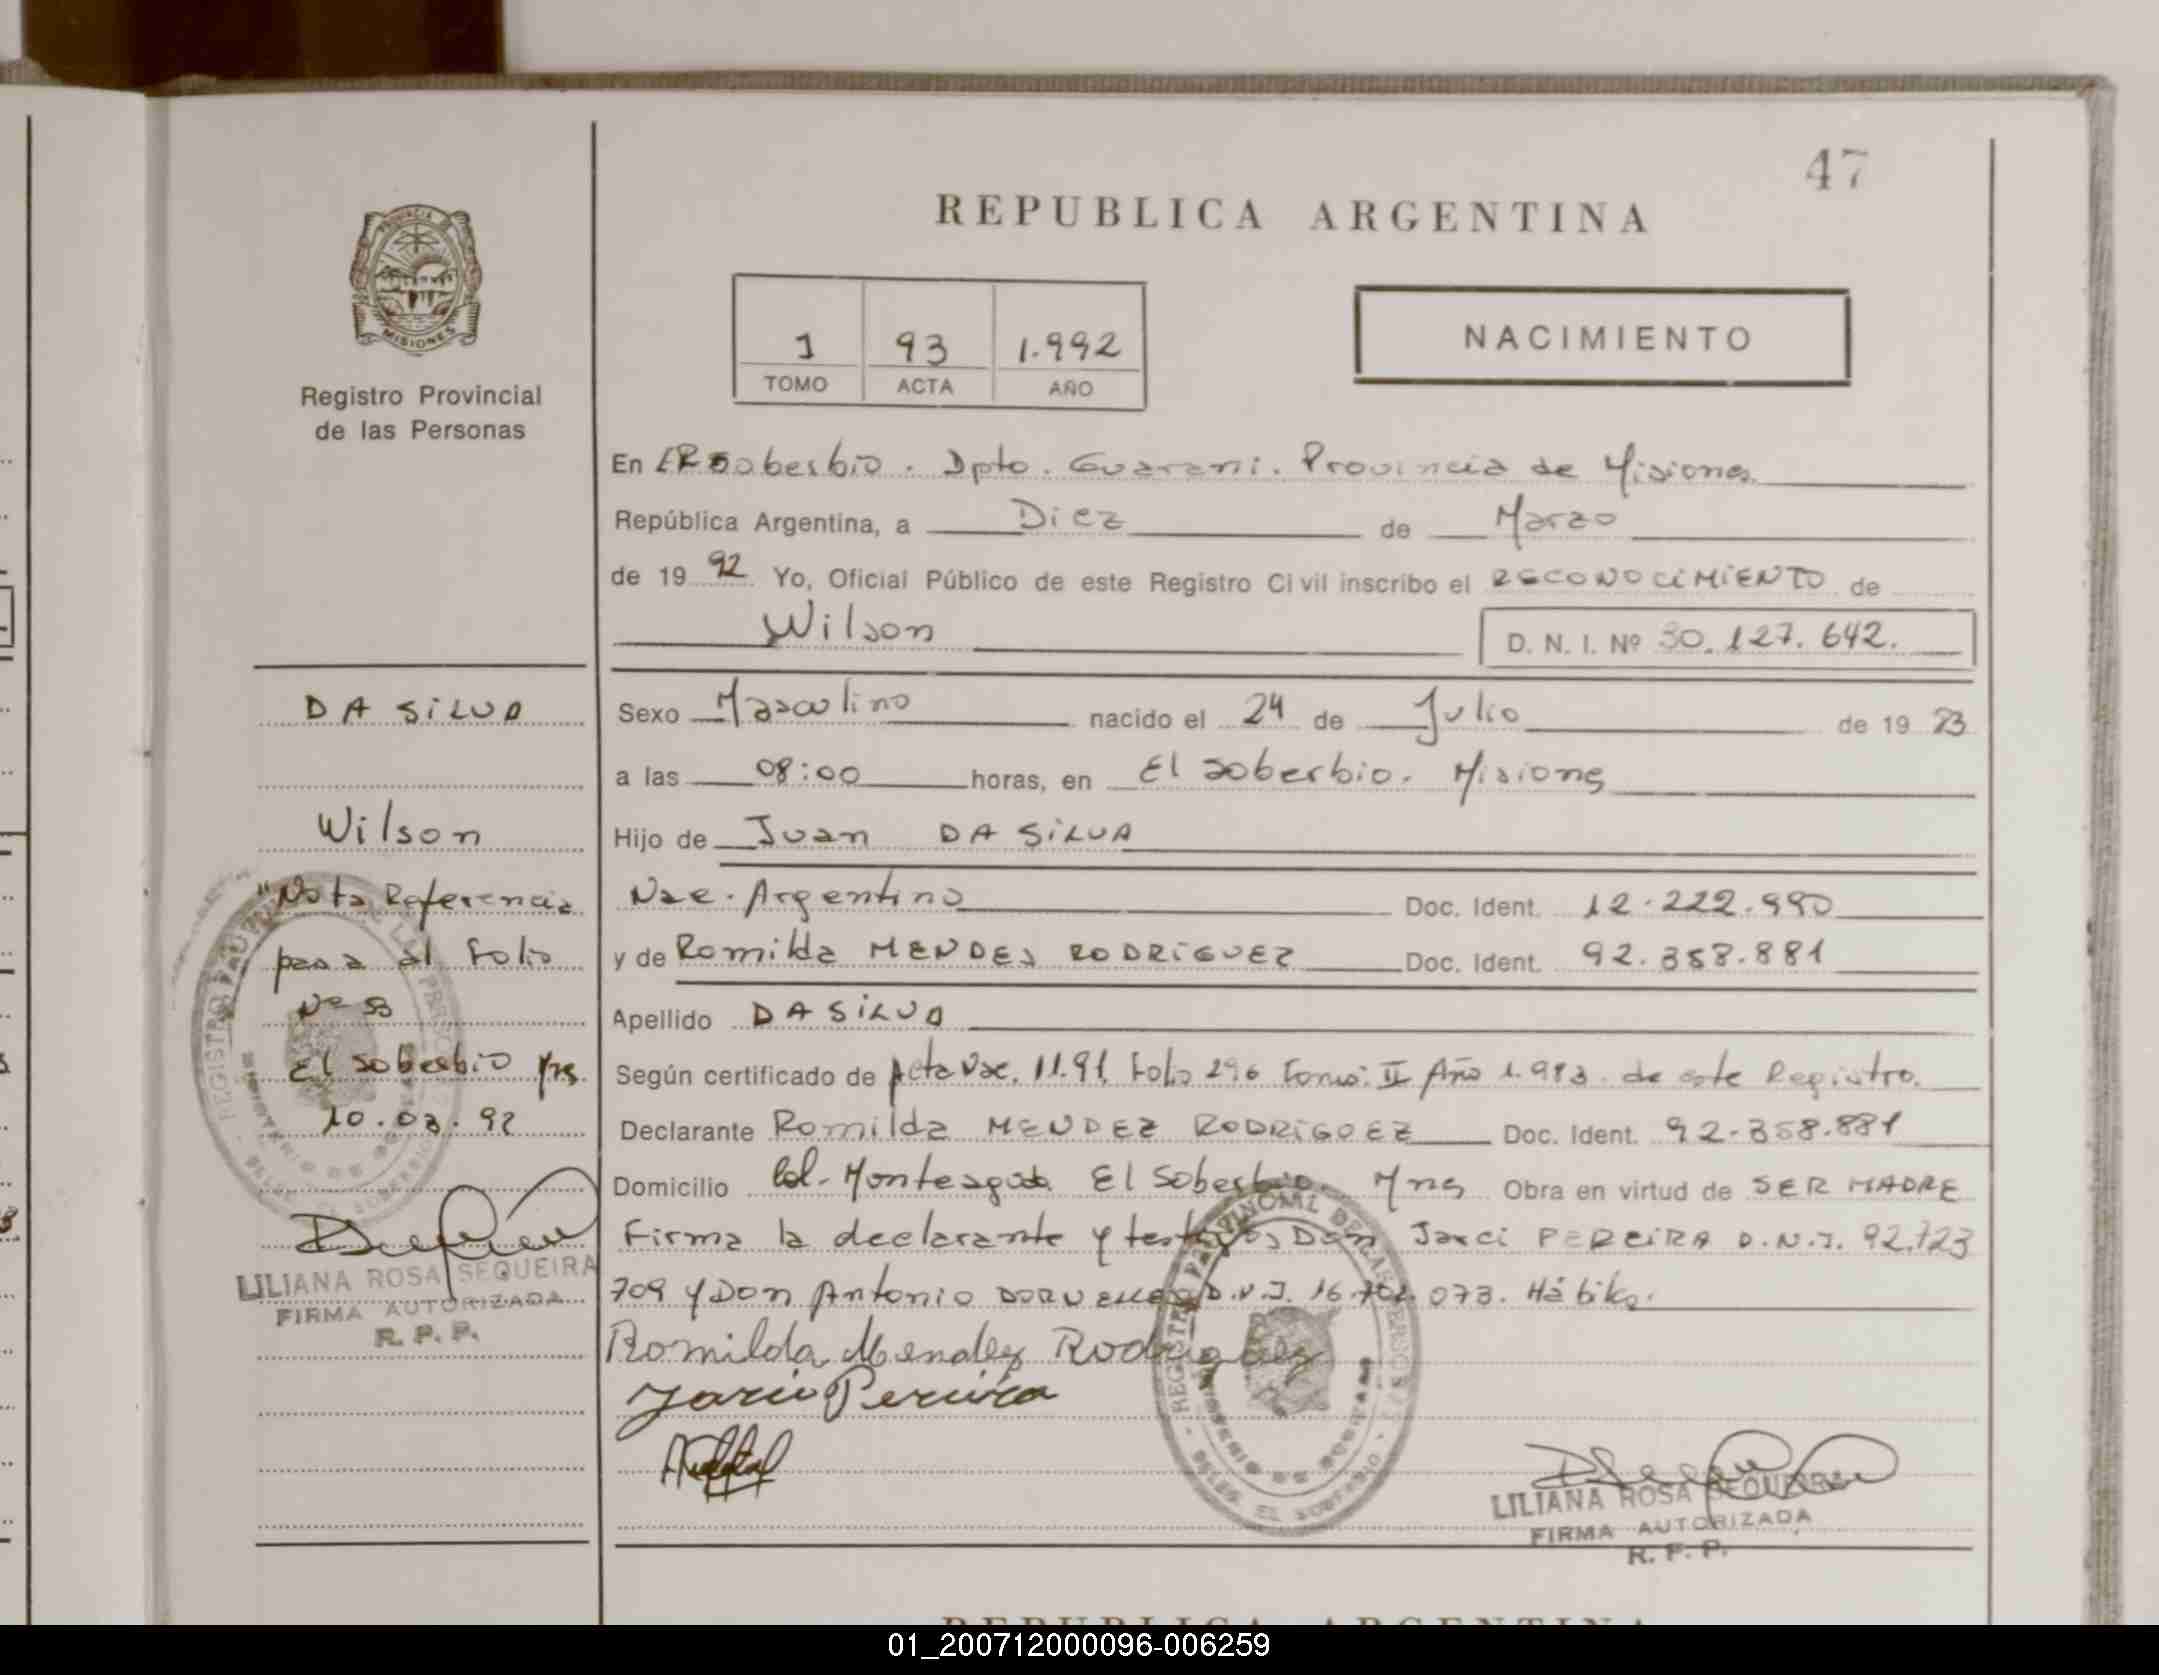 47
REPUBLICA ARGENTINA
PROVINCIA
MISIONES
Registro Provincial
de las Personas
1 93 1.992
TOMO ACTA AÑO
NACIMIENTO
En El Soberbio. Dpto. Guarani. Provincia de Misiones
República Argentina, a Diez de Marzo
de 1992 Yo, Oficial Público de este Registro Civil inscribo el RECONOCIMIENTO de
Wilson D. N. I. Nº 30.127.642.
DA SiLVA
Wilson
"Nota Referencia
pasa al Folio
Nº
El soberbio Mns
10.03.92
LILIANA ROSA SEQUEIRA
FIRMA AUTORIZADA
R. P. P.
Sexo Masculino nacido el 24 de Julio de 1983
a las 08:00 horas, en El Soberbio. Misiones
Hijo de Juan DA SiLVA
Nac. Argentino Doc. Ident. 12.222.990
y de Romilda MENDES RODRiGUEZ Doc. Ident. 92.358.881
Apellido DA SiLVA
Según certificado de Acta Nac. 1191 Folio 296 Tomo: II Año 1.983. de este Registro.
Declarante Romilda MENDEZ RODRiGUEZ Doc. Ident. 92.358.881
Domicilio Col. Monteagudo El Soberbio. Mns Obra en virtud de SER MADRE
Firma la declarante y testigos Don Jarci PEREiRA D.N.I. 92.723
709 y Don Antonio D.N.I. 16. 073. Hábiles.
Romilda Mendez Rodriguez
Pereira
REGISTRO PROVINCIAL DE LAS PERSONAS
MINISTERIO DE GOBIERNO
DELEG. EL SOBERBIO
LILIANA ROSA SEQUEIRA
FIRMA AUTORIZADA
R. P. P.
REPUBLICA ARGENTINA
01_200712000096-006259